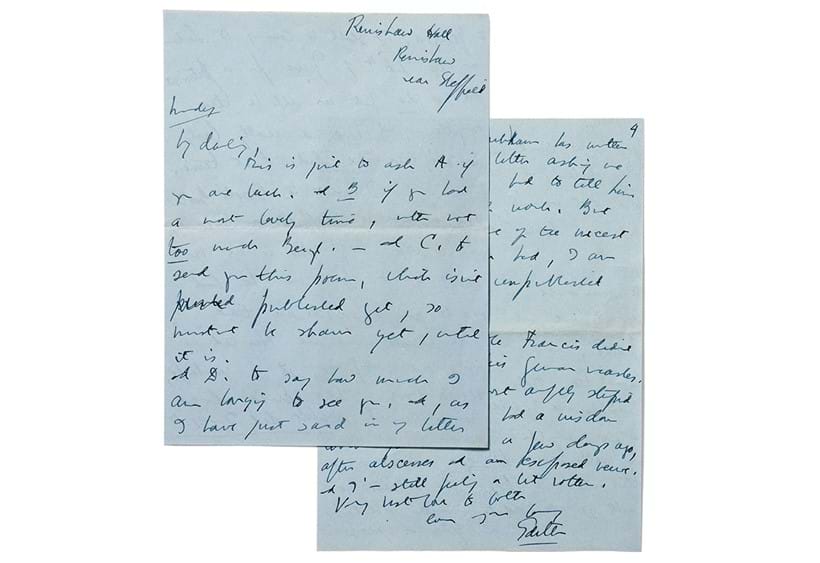 Renishaw Hall
Renishaw
near Sheffield
My darling,
This is just to ask A if
you are back. and B if you had
a most lovely time, with not
too much Beryl. — and C. to
send you this poem, which isn't
printed published yet, so
mustn't be shown yet, until
it is.
and D. to say how much I
am longing to see you. and, as
I have just said in my letter
4
has written
letter asking me
had to tell him
work. But
of the nicest
had, I am
unpublished
Francis
German
stupid
had a wisdom
a few days ago,
after abscesses and an exposed nerve.
and I'm still feeling a bit rotten.
Very best love to both
love from your loving
Edith